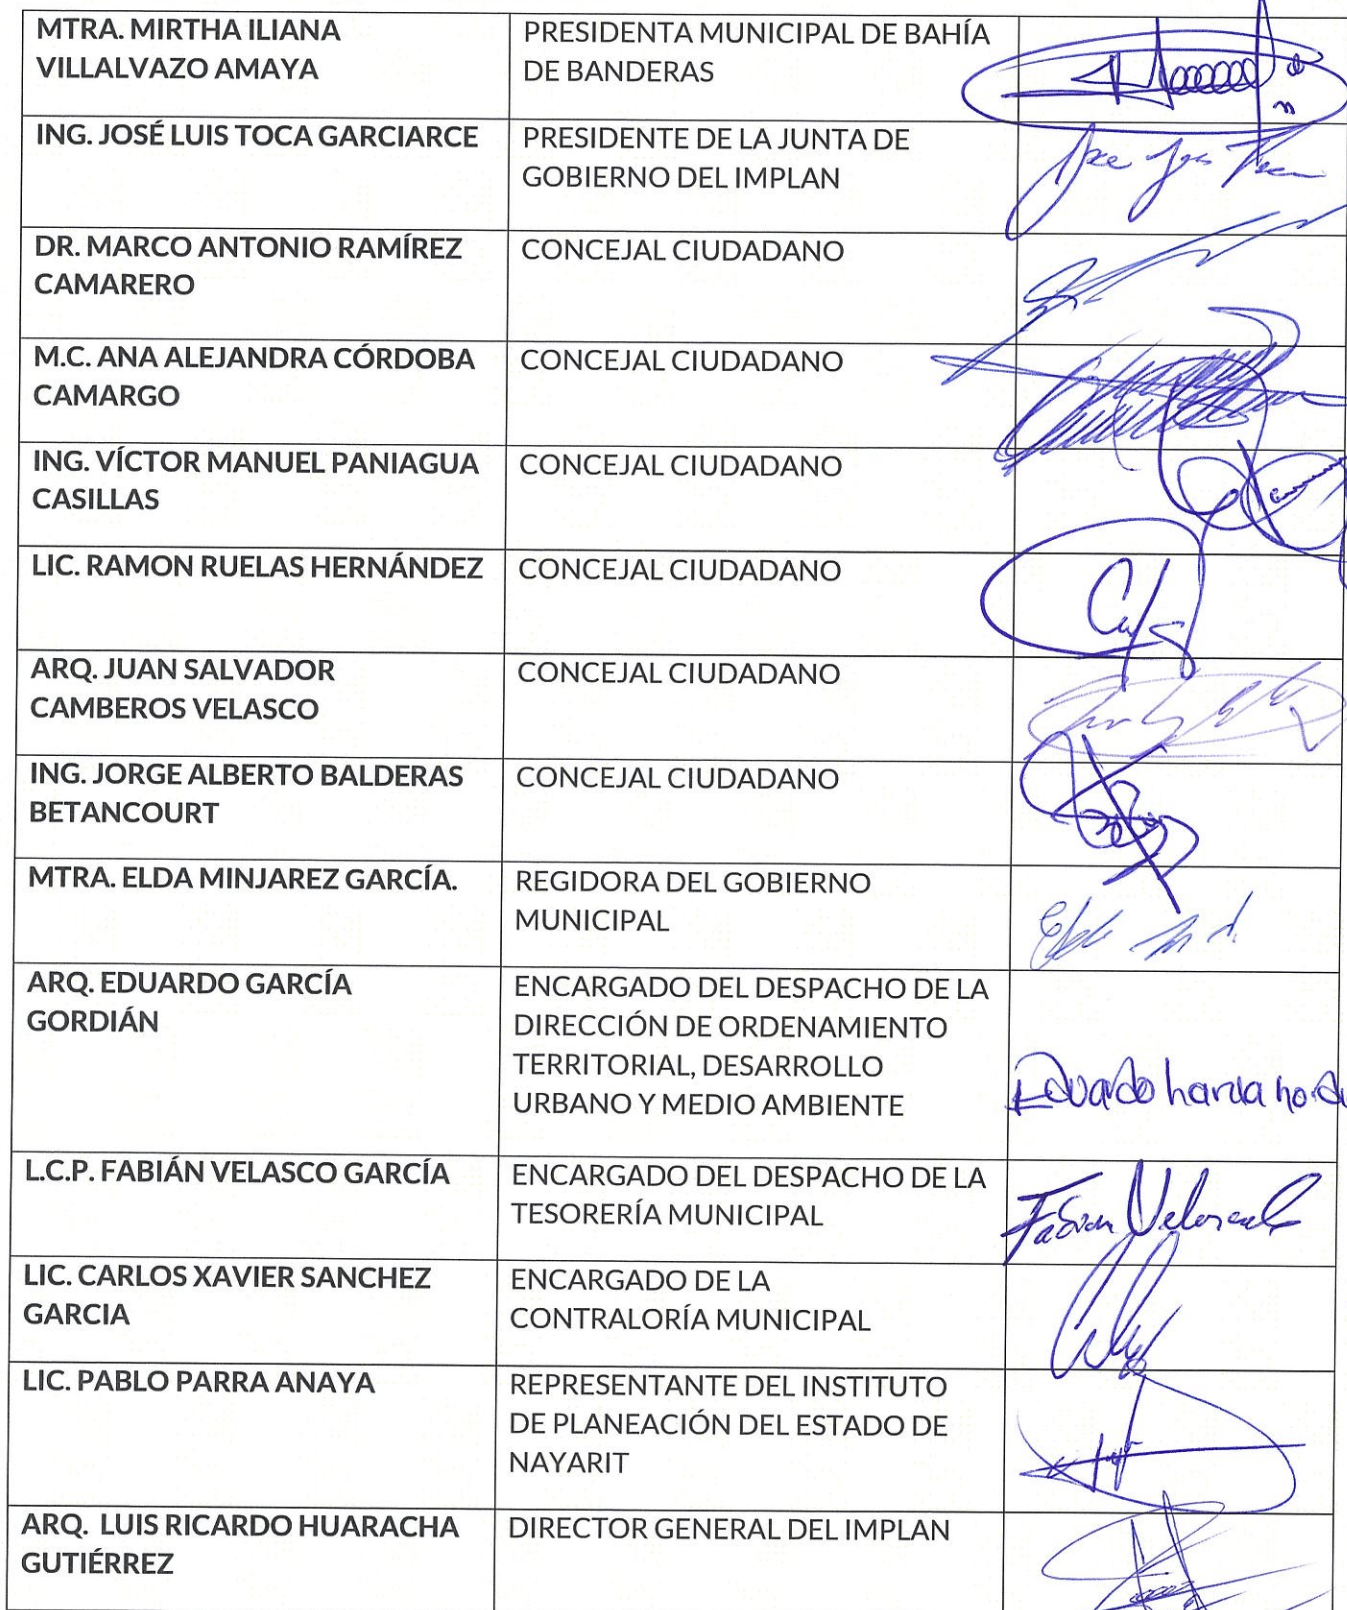 MTRA. MIRTHA ILIANA
VILLALVAZO AMAYA
PRESIDENTA MUNICIPAL DE BAHÍA
DE BANDERAS
ING. JOSÉ LUIS TOCA GARCIARCE
PRESIDENTE DE LA JUNTA DE
GOBIERNO DEL IMPLAN
DR. MARCO ANTONIO RAMÍREZ
CAMARERO
CONCEJAL CIUDADANO
M.C. ANA ALEJANDRA CÓRDOBA
CAMARGO
CONCEJAL CIUDADANO
ING. VÍCTOR MANUEL PANIAGUA
CASILLAS
CONCEJAL CIUDADANO
LIC. RAMON RUELAS HERNÁNDEZ
CONCEJAL CIUDADANO
ARQ. JUAN SALVADOR
CAMBEROS VELASCO
CONCEJAL CIUDADANO
ING. JORGE ALBERTO BALDERAS
BETANCOURT
CONCEJAL CIUDADANO
MTRA. ELDA MINJAREZ GARCÍA.
REGIDORA DEL GOBIERNO
MUNICIPAL
ARQ. EDUARDO GARCÍA
GORDIÁN
ENCARGADO DEL DESPACHO DE LA
DIRECCIÓN DE ORDENAMIENTO
TERRITORIAL, DESARROLLO
URBANO Y MEDIO AMBIENTE
Eduardo Garcia
L.C.P. FABIÁN VELASCO GARCÍA
ENCARGADO DEL DESPACHO DE LA
TESORERÍA MUNICIPAL
Fabian Velasco
LIC. CARLOS XAVIER SANCHEZ
GARCIA
ENCARGADO DE LA
CONTRALORÍA MUNICIPAL
LIC. PABLO PARRA ANAYA
REPRESENTANTE DEL INSTITUTO
DE PLANEACIÓN DEL ESTADO DE
NAYARIT
ARQ. LUIS RICARDO HUARACHA
GUTIÉRREZ
DIRECTOR GENERAL DEL IMPLAN